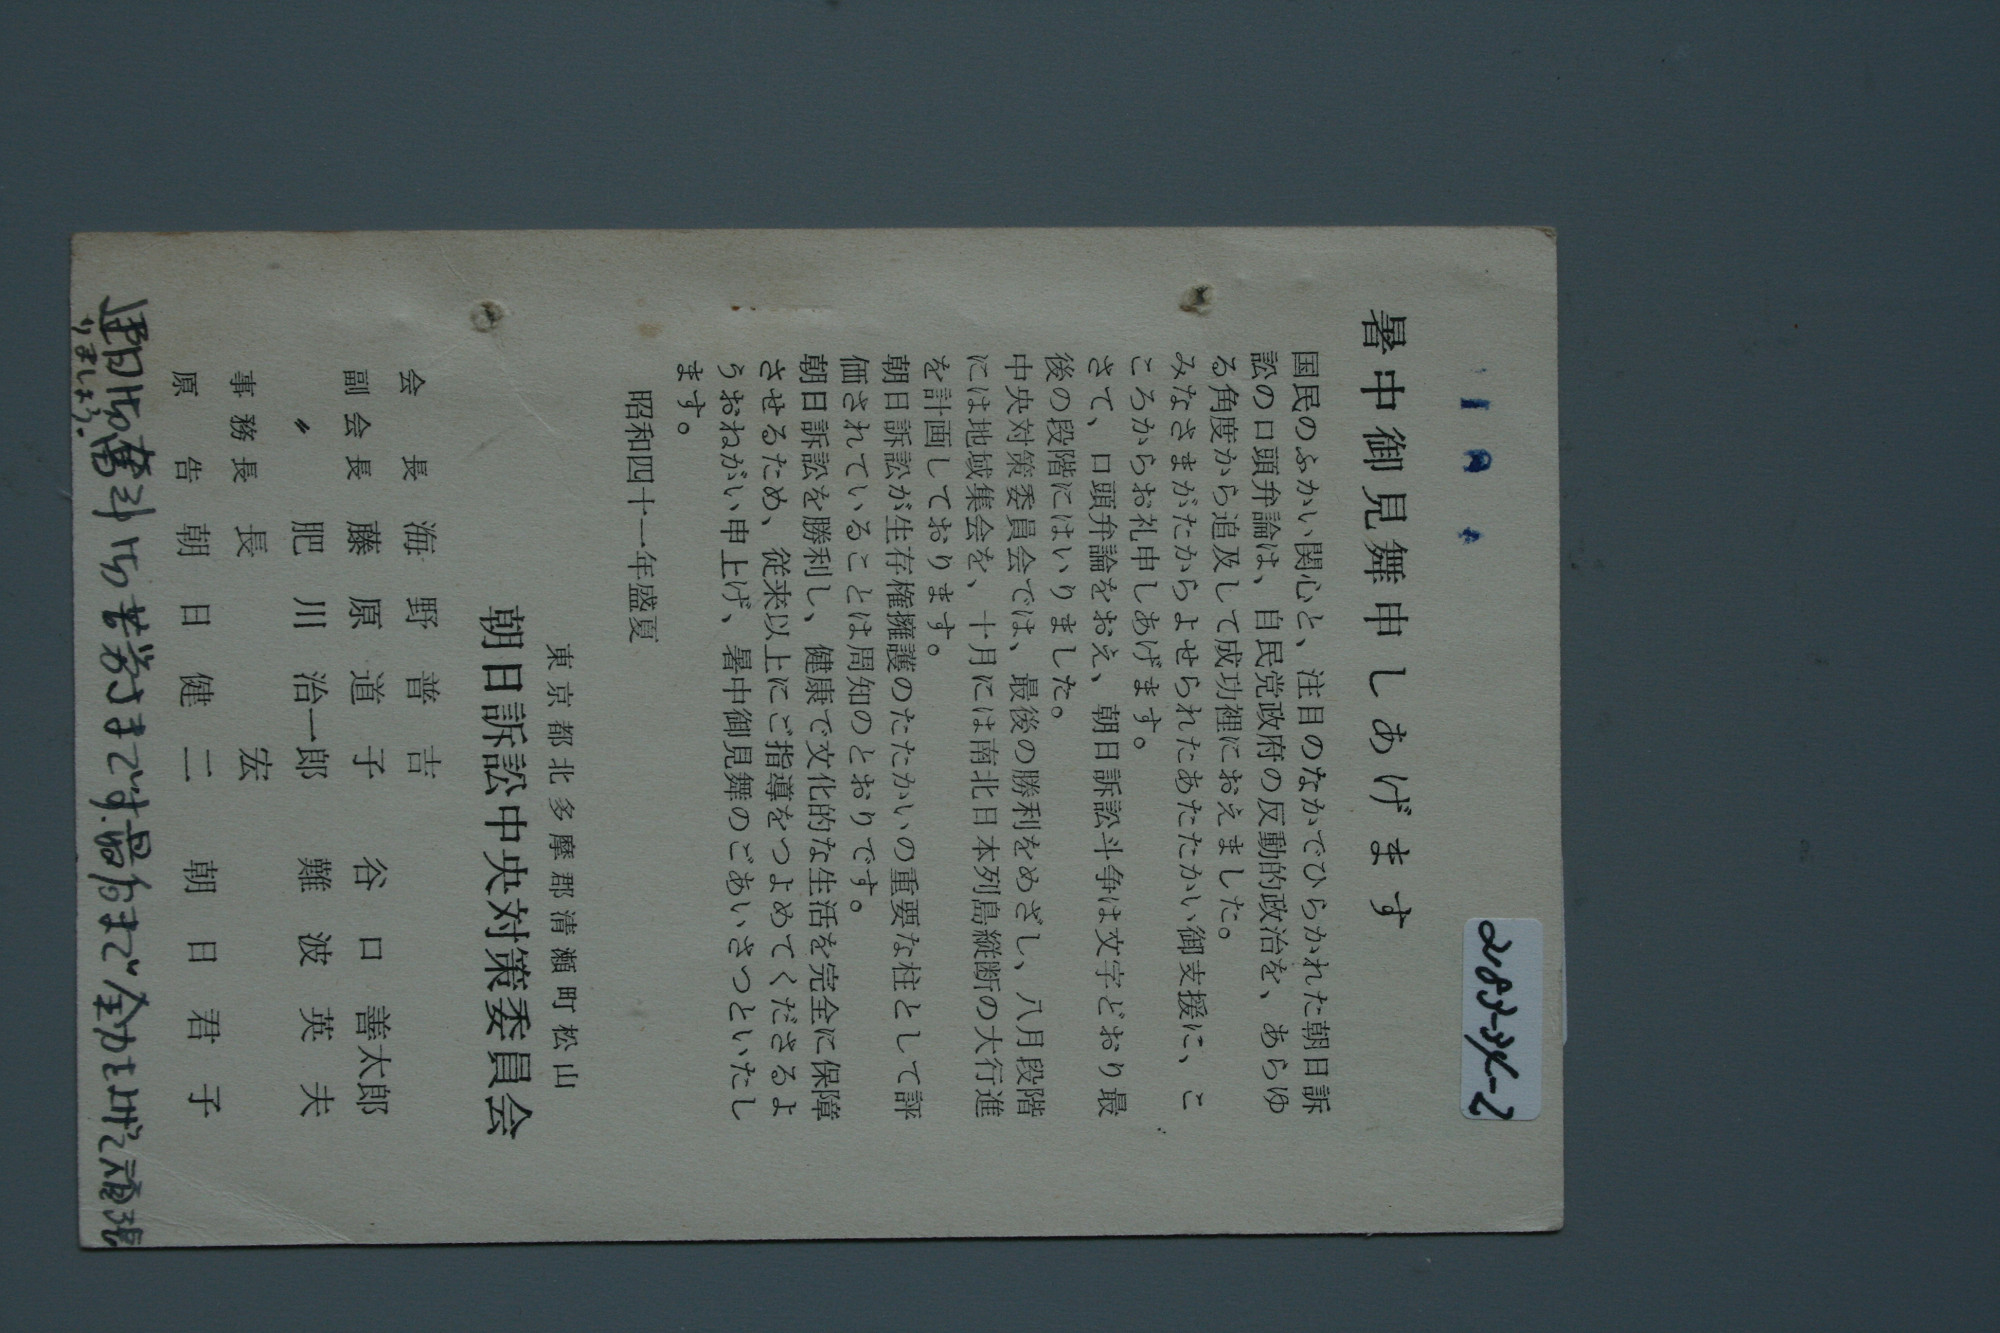 283-34-2
暑中御見舞申しあげます
国民のふかい関心と、注目のなかでひらかれた朝日訴
訟の口頭弁論は、自民党政府の反動的政治を、あらゆ
る角度から追及して成功裡におえました。
みなさまがたからよせられたあたたかい御支援に、こ
ころからお礼申しあげます。
さて、口頭弁論をおえ、朝日訴訟斗争は文字どおり最
後の段階にはいりました。
中央対策委員会では、最後の勝利をめざし、八月段階
には地域集会を、十月には南北日本列島縦断の大行進
を計画しております。
朝日訴訟が生存権擁護のたたかいの重要な柱として評
価されていることは周知のとおりです。
朝日訴訟を勝利し、健康で文化的な生活を完全に保障
させるため、従来以上にご指導をつよめてくださるよ
うおねがい申上げ、暑中御見舞のごあいさつといたし
ます。
昭和四十一年盛夏
東京都北多摩郡清瀬町松山
朝日訴訟中央対策委員会
会長 海野普吉
副会長 藤原道子 谷口善太郎
〃 肥川治一郎 難波英夫
事務長 長宏
原告 朝日健二 朝日君子
御苦労さまです。最后まで全力を上げて頑張
りましょう。